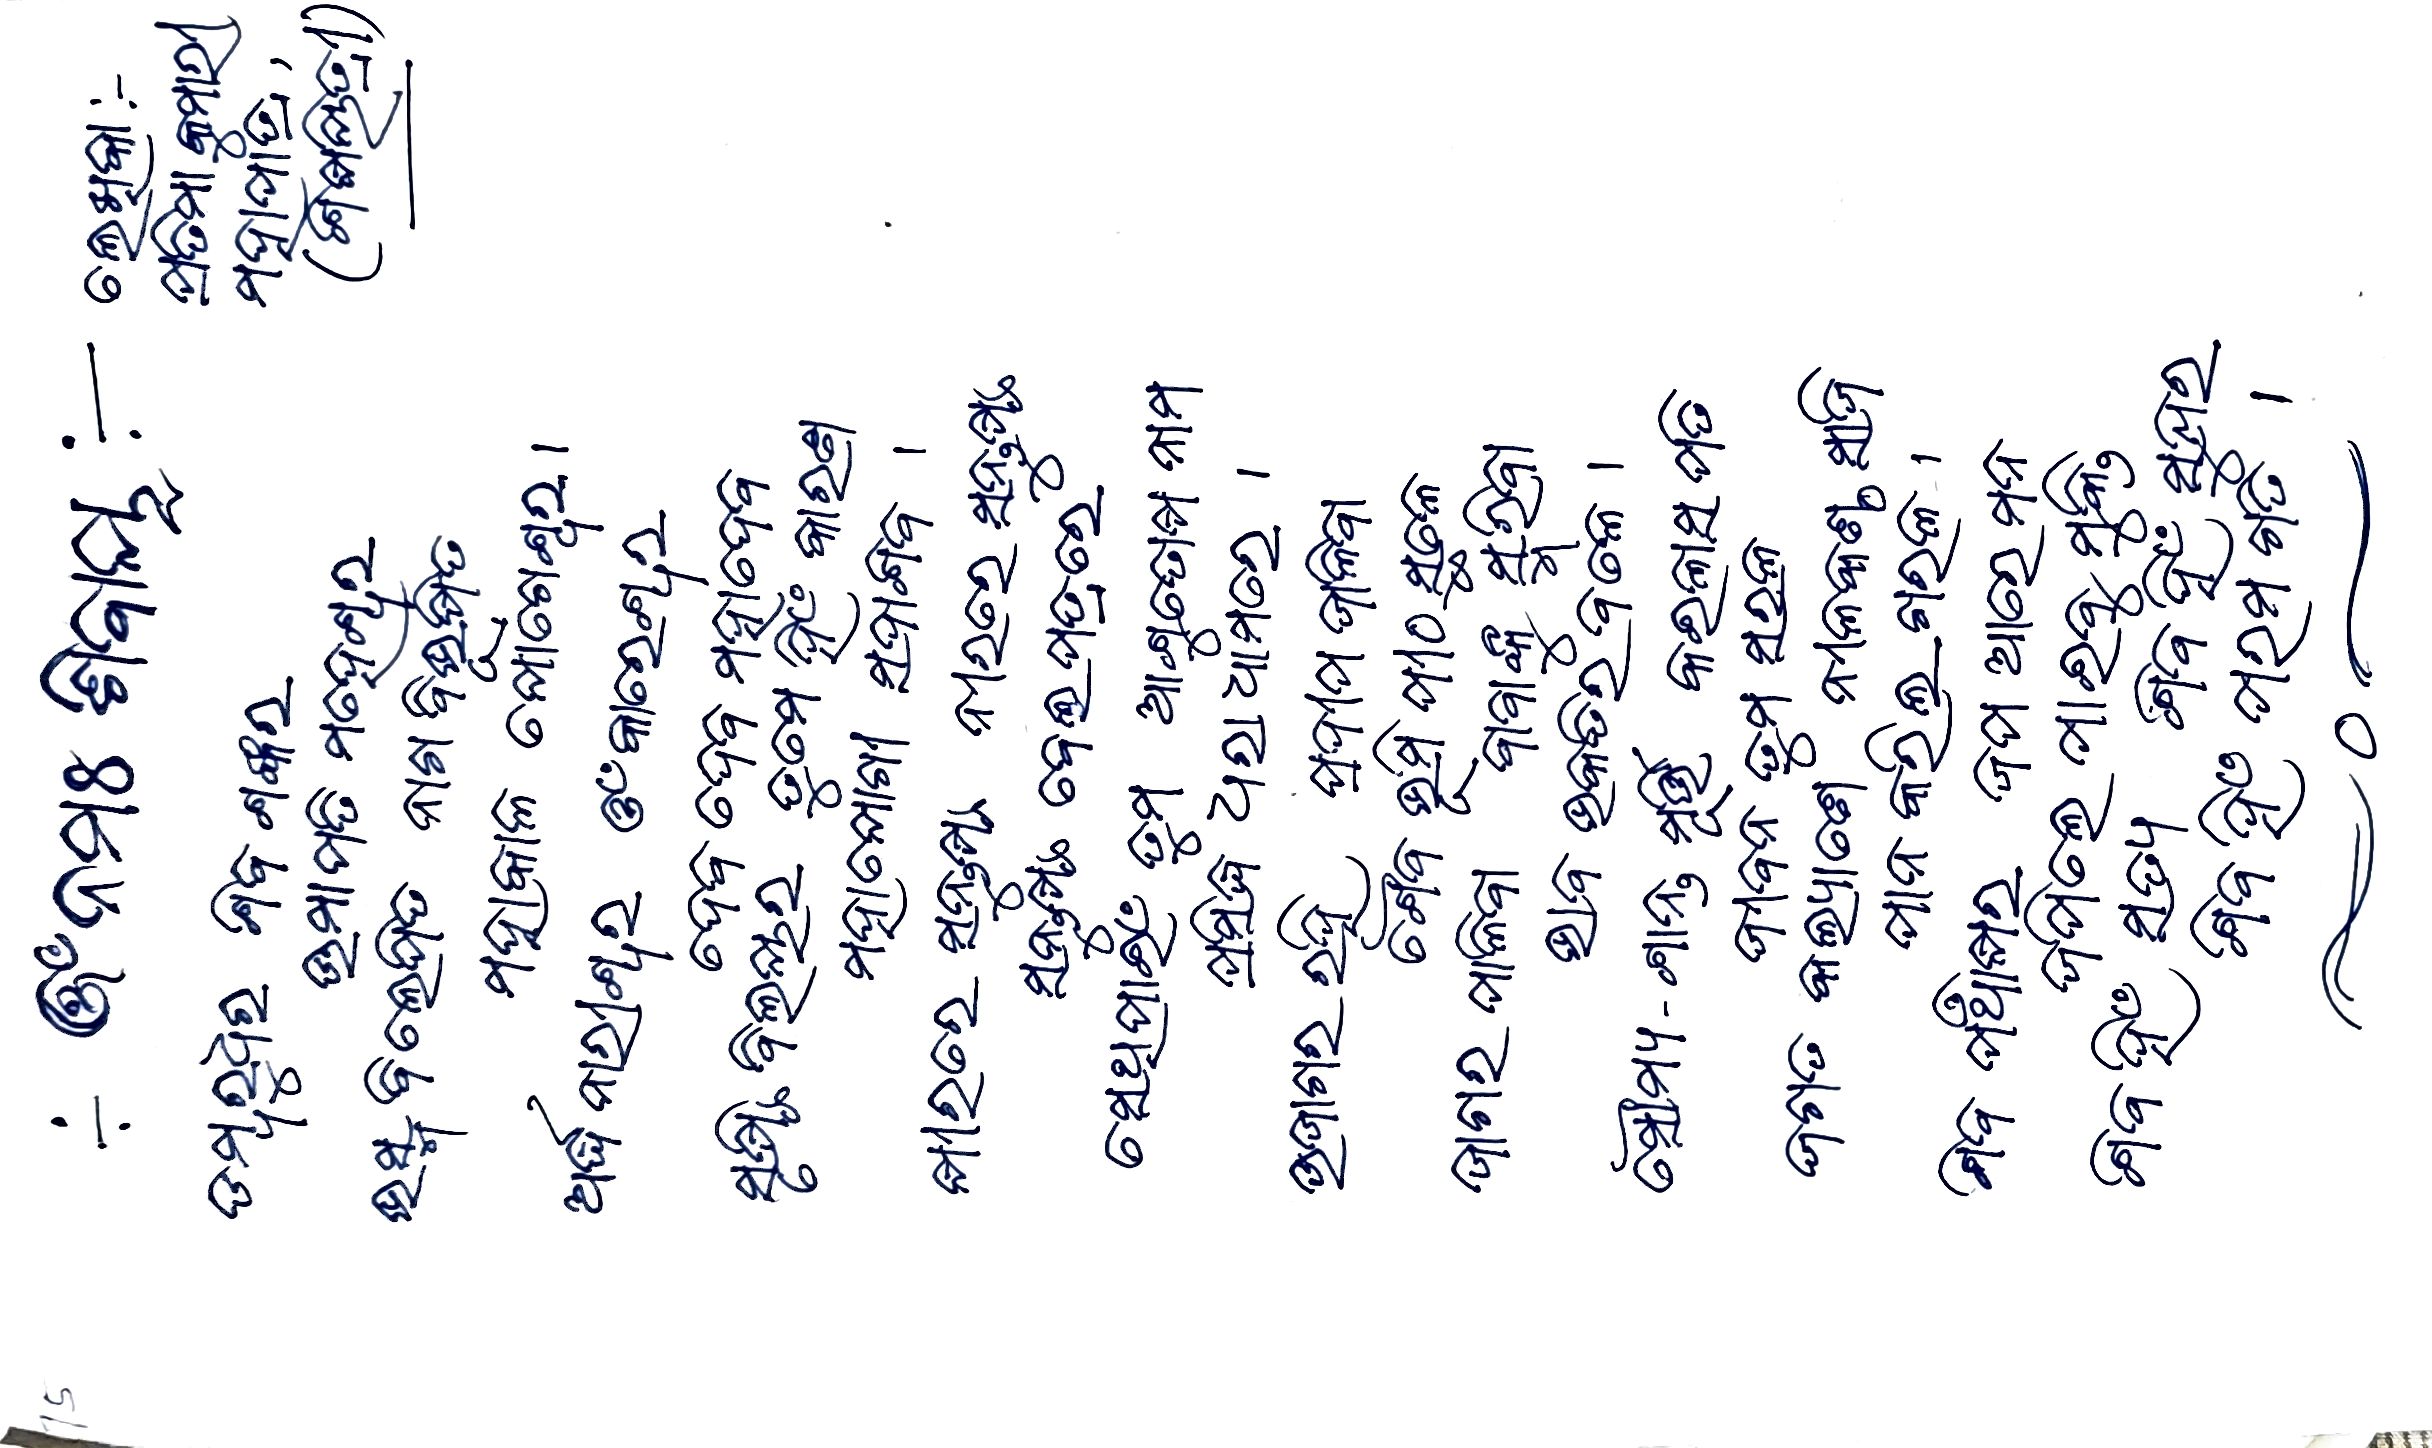 75
÷ ଓଁ ନମଃ ଶିବାୟ ÷
ଲେଖିକା :-
ପ୍ରତିମା କୁମାରୀ
ମହାପାତ୍ର,
(ଶିକ୍ଷୟିତ୍ରୀ)
ଡମ୍ବରୁଧର ଶିବ ଶଙ୍କର
ଉମାପତି ମହେଶ୍ୱର
ଭସ୍ମ ବିଲେପିତ ନାଗ ବିଭୂଷିତ
ମହାକାଳ ଯୋଗେଶ୍ୱର ।
ଅର୍ଦ୍ଧ ନାରୀଶ୍ୱର ଓଁକାରେଶ୍ୱର
ଦେବ ଦେବ ମହାଦେବ
ସୃଷ୍ଟି ବିଲୟର ତୁମେ ହିଁ କାରଣ
ମହାଯୋଗୀ ସଦାଶିବ ।
କ୍ଷୀରରେ ସନ୍ତୁଷ୍ଟ ନୀରରେ ସନ୍ତୁଷ୍ଟ
ସନ୍ତୁଷ୍ଟ ବେଲପତ୍ରରେ
ସେଥିପାଇଁ ତୁମ ଆଶୁତୋଷ ନାମ
ପ୍ରସିଦ୍ଧ ଧରା ଧାମରେ ।
ଉଜାଗର ରହି ପ୍ରଦୀପ ଜାଳିବା
ଶୈବ ଭୂମି ପୀଠ ସ୍ଥଳେ
ଜାଗର ପାଳିବା ବାବାଙ୍କୁ ସ୍ମରିବା
ଭାବ ଭକତିର ବଳେ ।
ସୌମ୍ୟ-ଶାନ୍ତ ମୂର୍ତ୍ତି କଇଳାସ ପତି
ଜୀବନ ତୁମ ସରଳ
ଜଗତ କଲ୍ୟାଣେ ନୀଳକଣ୍ଠ ସାଜି
ପାନ କରିଲ ଗରଳ ।
ଶିବ ପଞ୍ଚାକ୍ଷର ଜପ ଆରେ ମନ
ଜପିଲେ ପାଇବୁ ମୁକ୍ତି
ଶିବ ହିଁ ସତ୍ୟ ଶିବ ହିଁ ସୁନ୍ଦର
ଶିବ ହିଁ ପରମ ଗତି ।